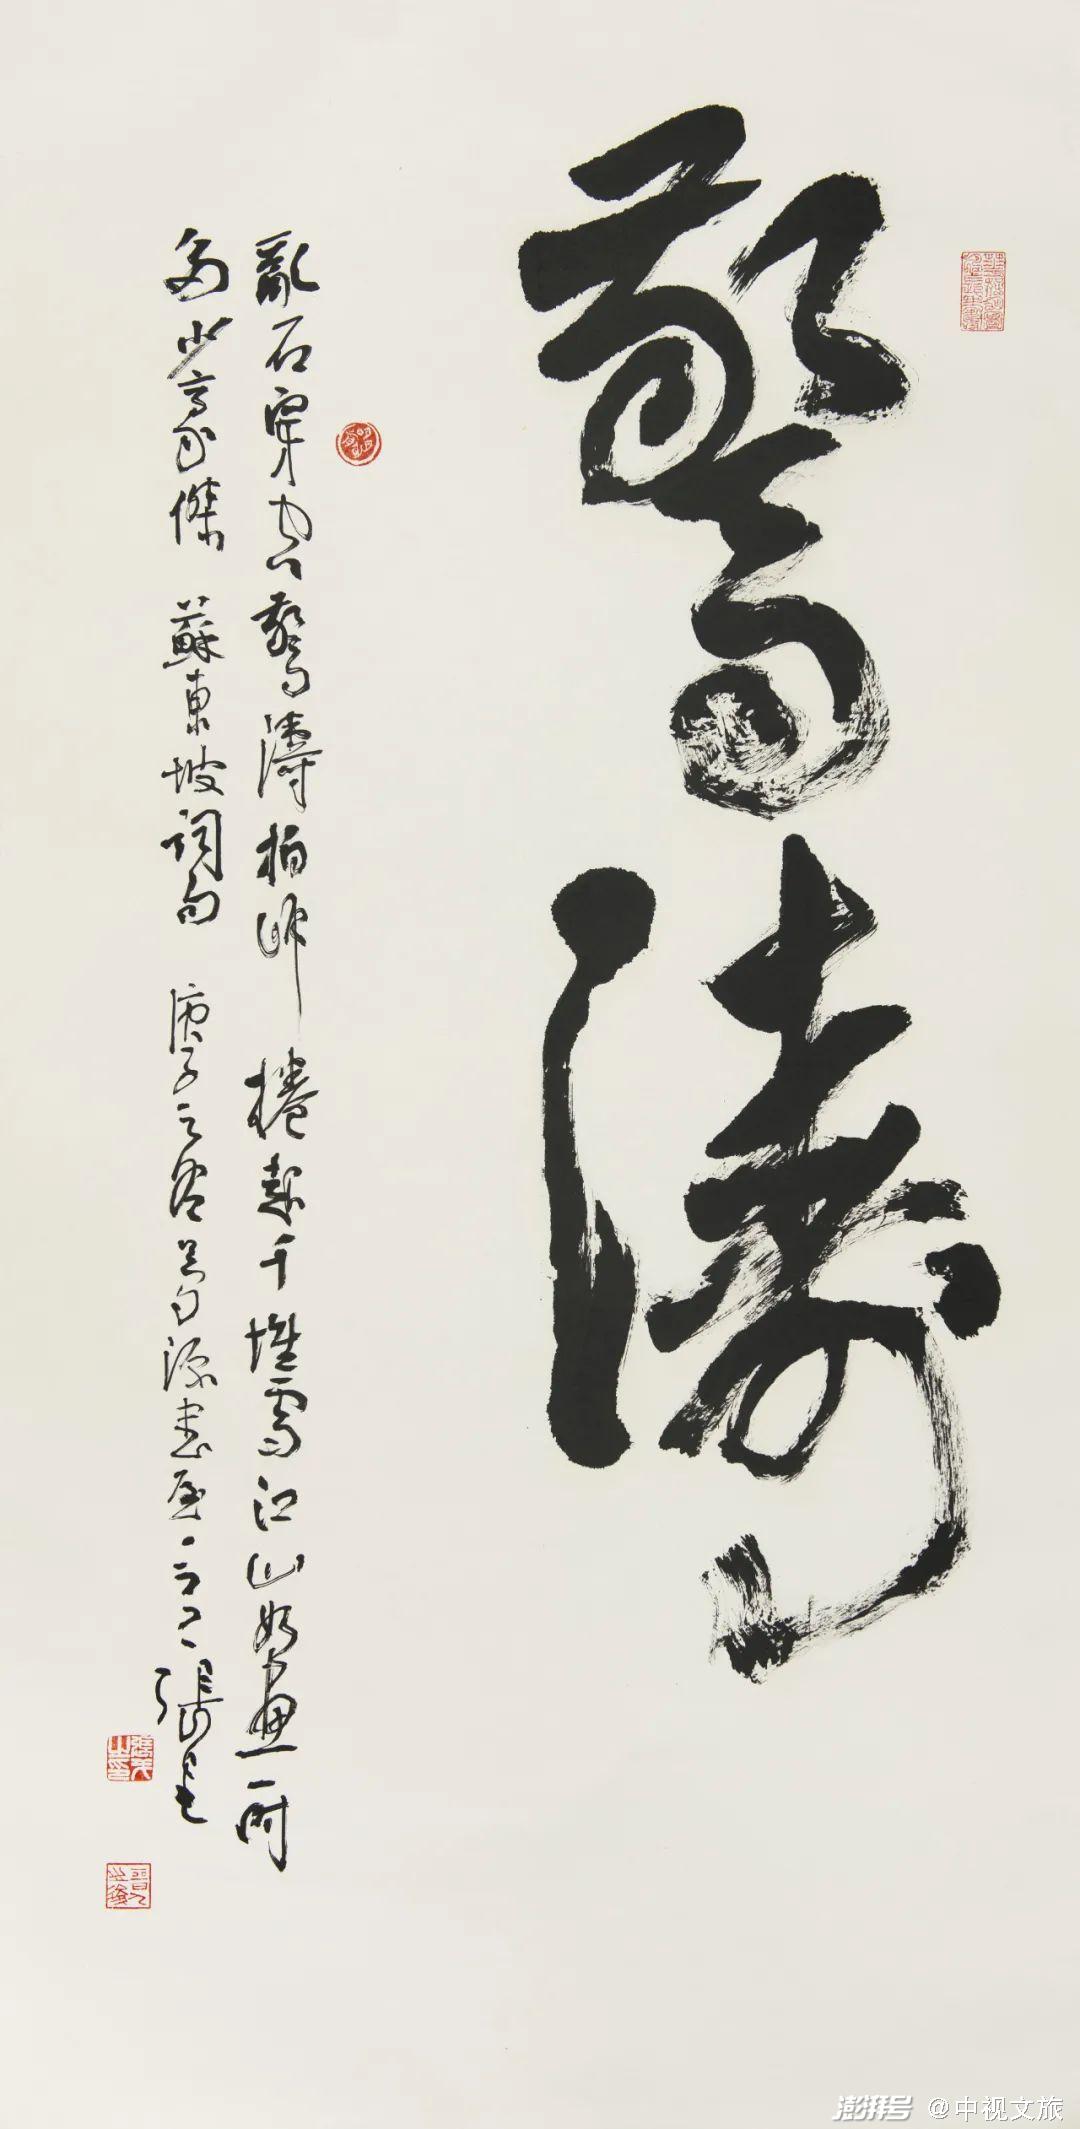 驚濤
亂石穿空驚濤拍岸捲起千堆雪江山如畫一時
多少豪傑 蘇東坡詞句 庚子之冬 源書屋 張
澎湃号 @中视文旅